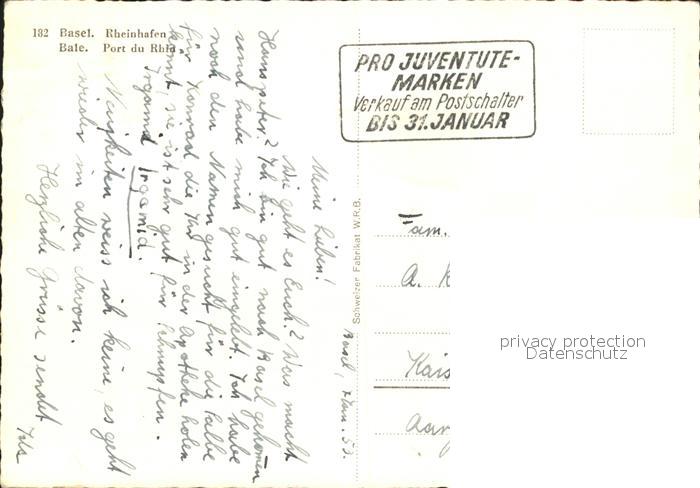 182 Basel. Rheinhafen
Bale. Port du Rhin
PRO JUVENTUTE-
MARKEN
Verkauf am Postschalter
BIS 31. JANUAR
Schweizer Fabrikat W.R.B.
Basel, Jan. 53.
Meine Lieben!
Wie geht es Euch? Was macht
Hanspeter? Ich bin gut nach Basel gekommen
und habe mich gut eingelebt. Ich habe
noch den Namen gesucht für die Salbe
für Konrad die Ihr in der Apotheke holen
könnt, sie ist sehr gut für Schnupfen.
Irgamid Irgamid.
Neuigkeiten weiss ich keine, es geht
wieder im alten davon.
Herzliche Grüsse sendet
Fam.
A. K
Kais
Aar
privacy protection
Datenschutz